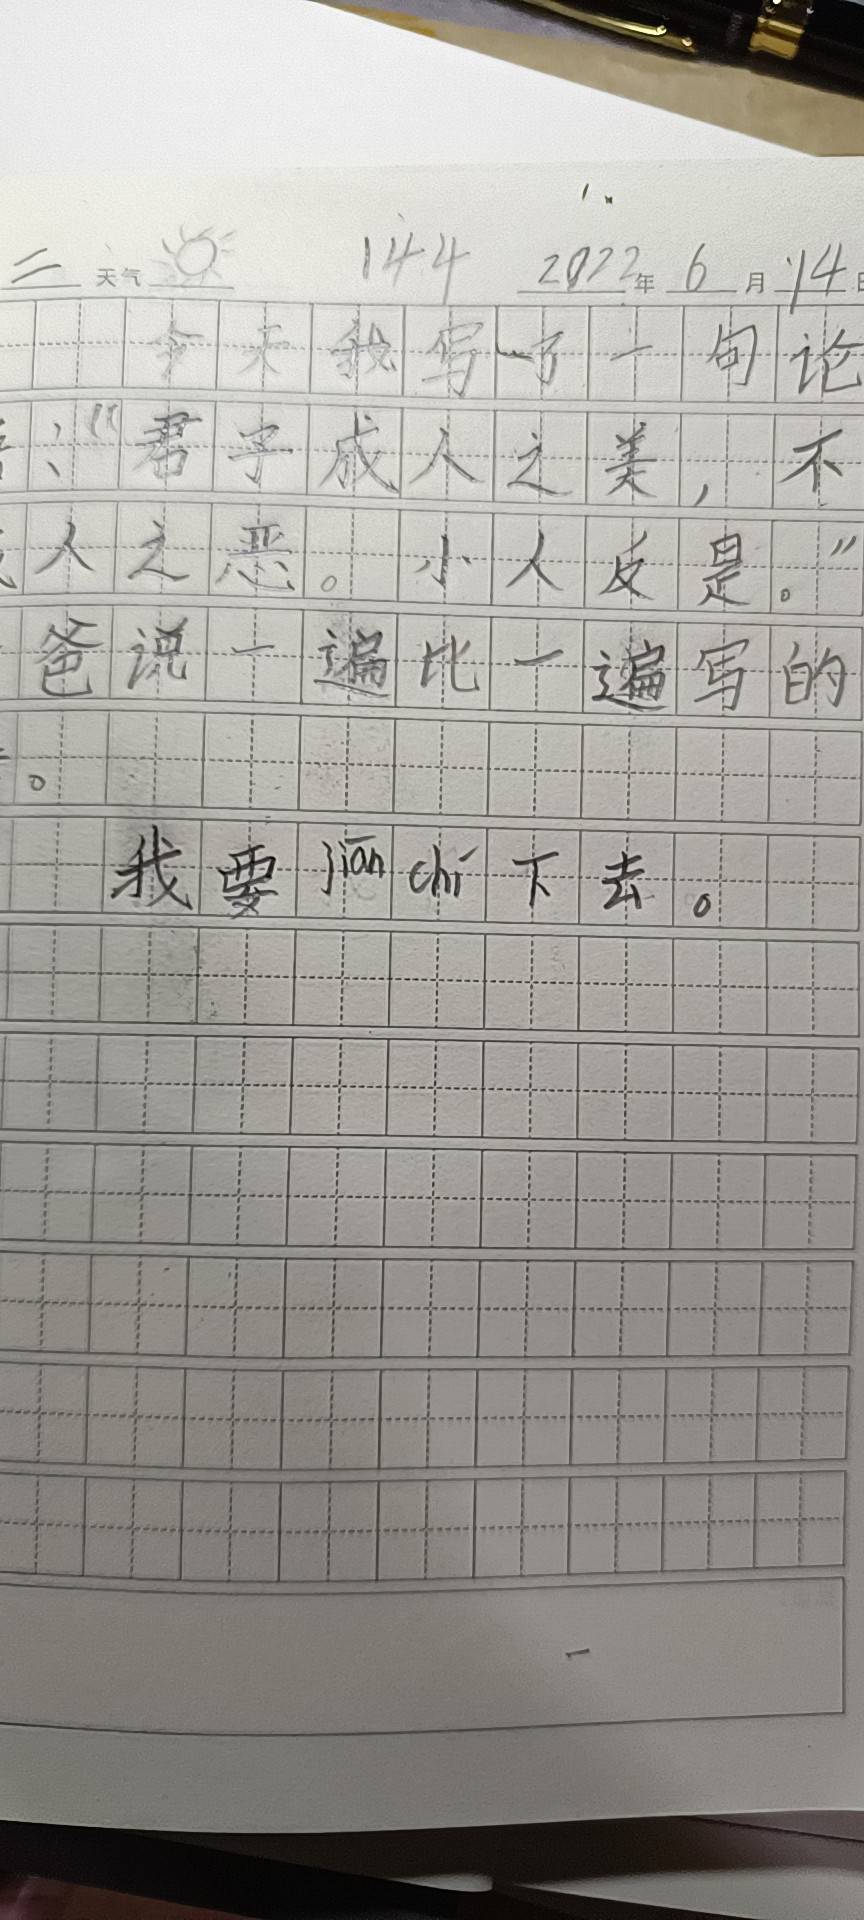 二 天气 144 2022年 6月 14日
今天我写了一句论
：“君子成人之美，不
人之恶。小人反是。”
爸说一遍比一遍写的
。
我要jiān chí下去。